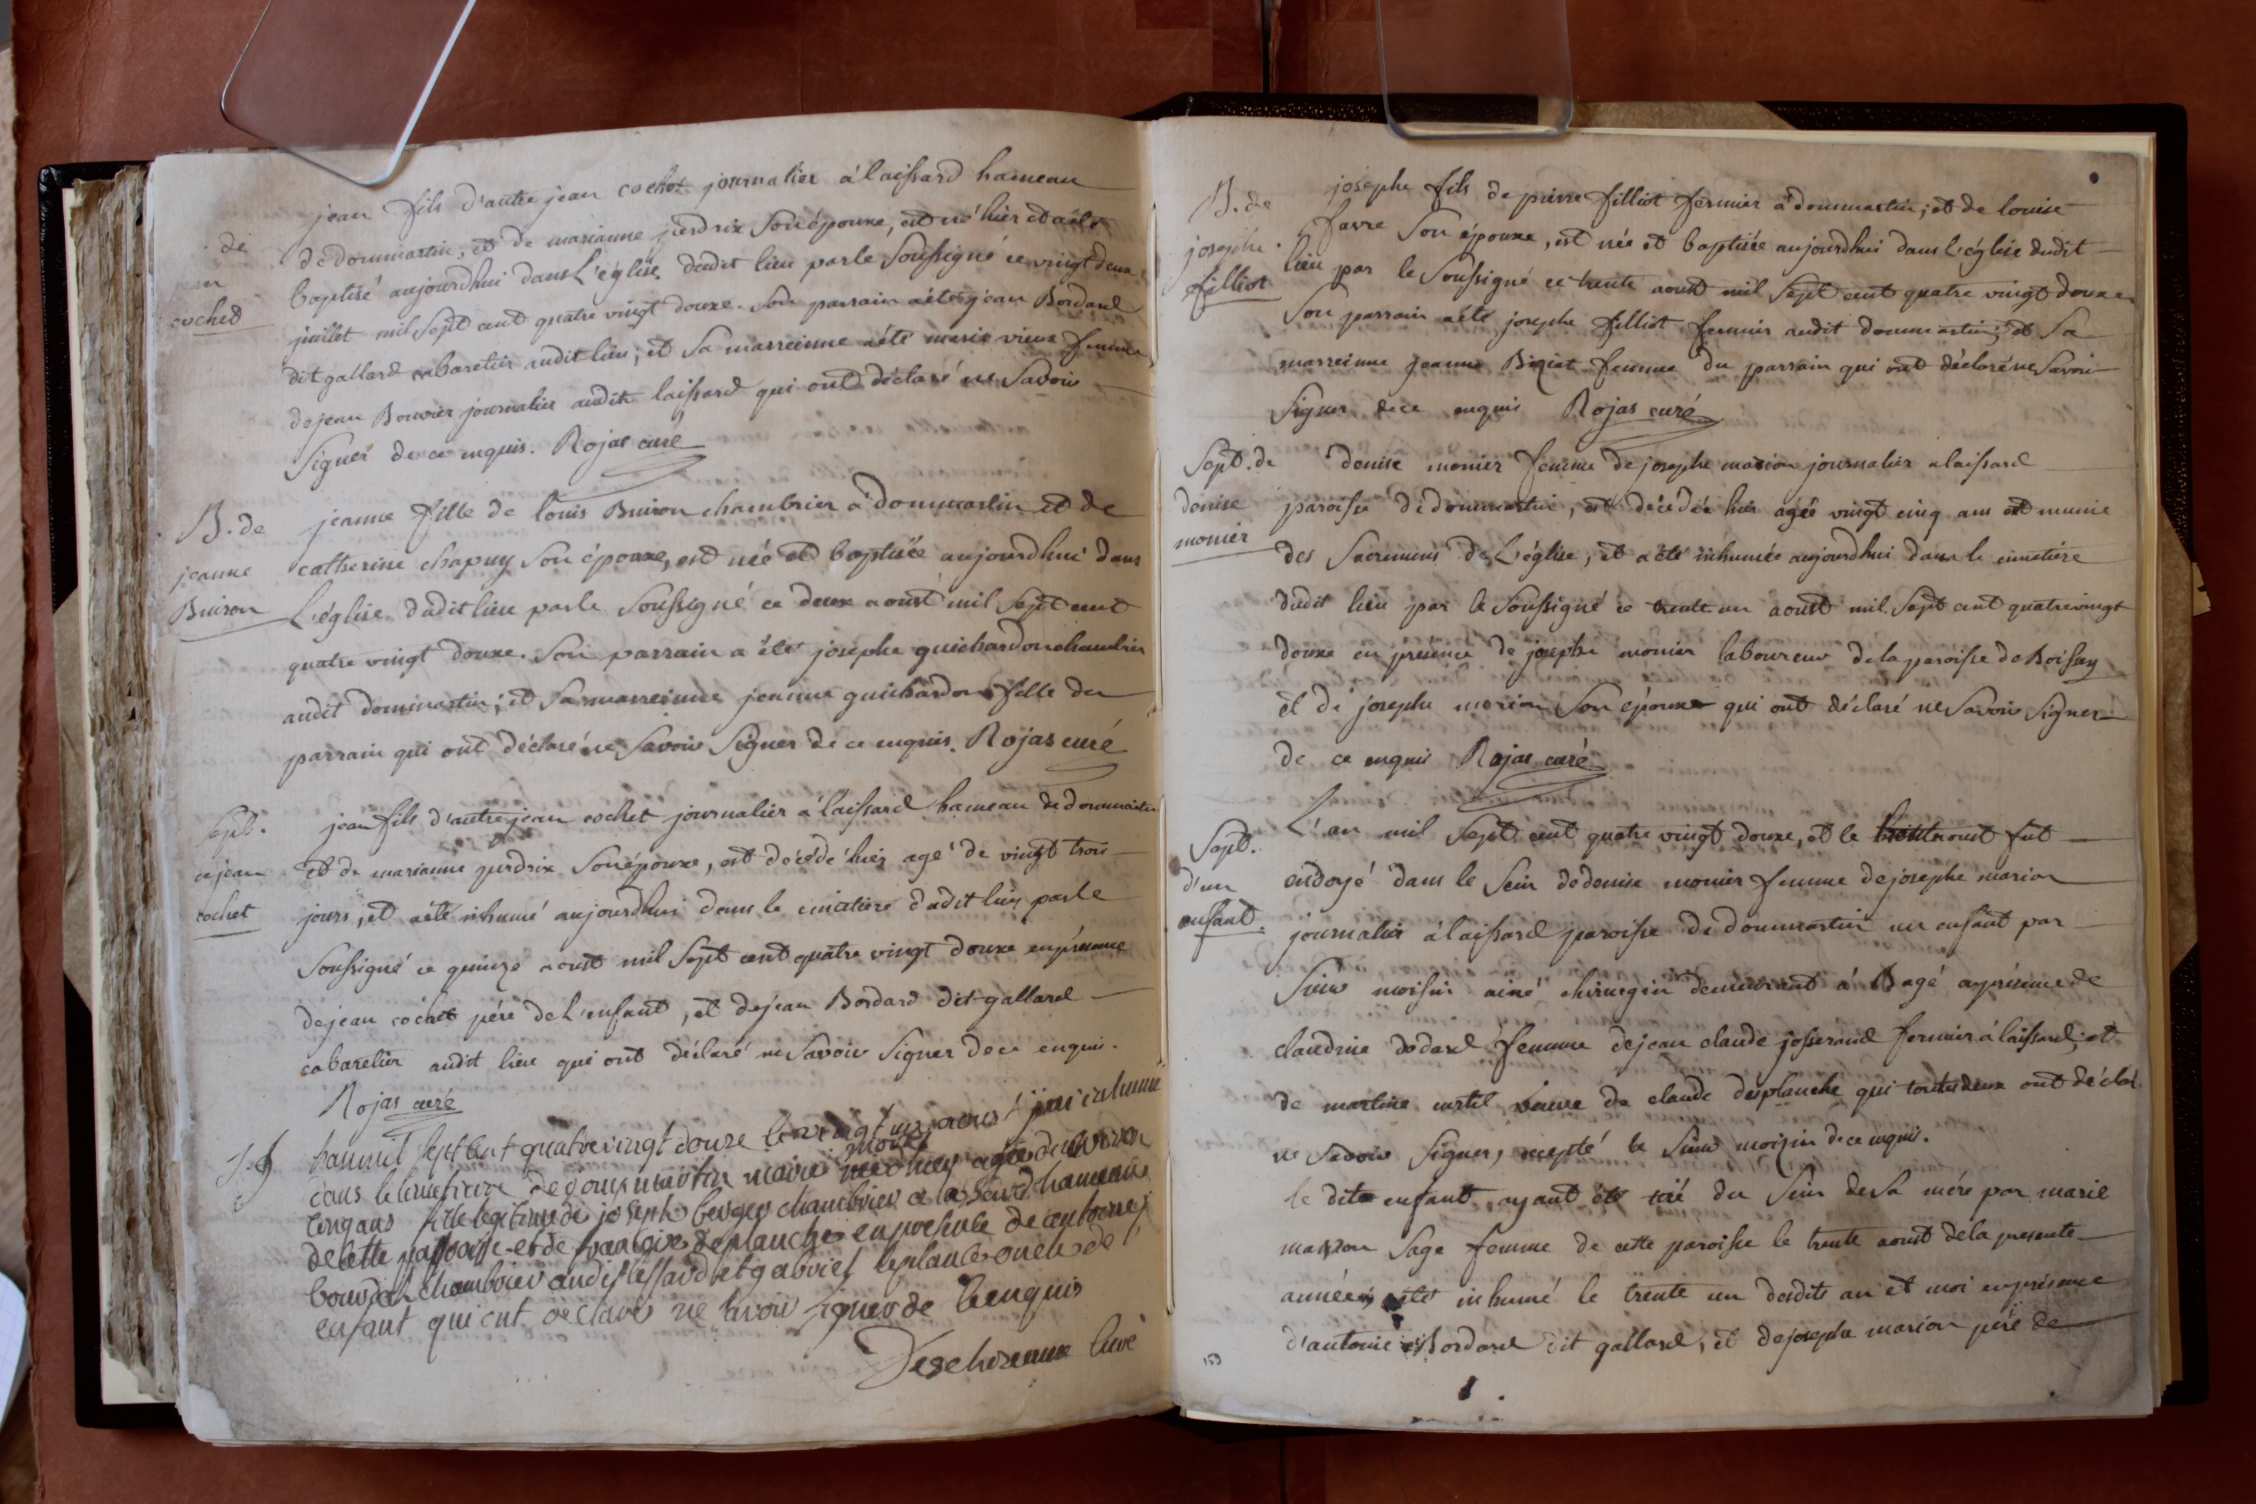 jean fils d'autre jean cochet journalier a laissard hameau
de dommartin, et de marianne perdrix son épouxe, est né hier et a été
baptisé aujourdhui dans L'église dudit lieu par le soussigné ce vingt deux
juillet mil sept cent quatre vingt douxe. son parrain a été jean Bordard
dit gallard cabaretier audit lieu; et sa marreinne a été marie vieux femme
de jean Bouvier journalier audit laissard qui ont déclaré ne savoir
signer de ce enquis. Rojas curé
de
jean
cochet
B. de
jeanne
Buiron
jeanne fille de louis Buiron chambrier a dommartin et de
catherine chapuy son épouxe, est née et baptisée aujourdhui dans
L'église dudit lieu par le soussigné ce deux aoust mil sept cent
quatre vingt douxe. son parrain a été josephe guichardon chambrier
audit dommartin; et sa marreinne jeanne guichardon fille du
parrain qui ont déclaré ne savoir signer de ce enquis. Rojas curé
sept.
de jean
cochet
jean fils d'autre jean cochet journalier a laissard hameau de dommartin
et de marianne perdrix son épouxe, est décédé hier agé de vingt trois
jours, et a été inhumé aujourdhui dans le cimetiere dudit lieu par le
soussigné ce quinze aoust mil sept cent quatre vingt douxe en présence
de jean cochet pére de L'enfant, et de jean Bordard dit gallard
cabaretier audit lieu qui ont déclaré ne savoir signer de ce enquis.
Rojas curé
lan mil sept cent quatre vingt douze le vingt un aoust jai inhumé
dans le cimetiere de dommartin marie morte hier agée d'environ
cinq ans fille legitime de joseph berger chambrier a lassard hameau
de cette parroisse et de francoise deplanche en presence de
bourdon chambrier audit lessard et gabriel deplanche oncle de l'
enfant qui ont declarés ne savoir signer de ce enquis
Deschizeaux curé
B. de
josephe
filliot
josephe fils de pierre filliot fermier a dommartin; et de louise
favre son épouxe, est née et baptisée aujourdhui dans L'église dudit
lieu par le soussigné ce trente aoust mil sept cent quatre vingt douxe
son parrain a été josephe filliot fermier audit dommartin; et sa
marreinne jeanne Biziat femme du parrain qui ont déclaré ne savoir
signer de ce enquis Rojas curé
Sept. de
denise
monier
denise monier femme de josephe marion journalier a laissard
paroisse de dommartin, est décédée hier agée vingt cinq ans et munie
des sacremens de L'église, et a été inhumée aujourdhui dans le cimetiére
dudit lieu par le soussigné ce trente un aoust mil sept cent quatre vingt
douxe en présence de josephe monier laboureur de la paroisse de Boissey
et de josephe marion son épouxe qui ont déclaré ne savoir signer
de ce enquis Rojas curé
Sept.
d'un
enfant.
L'an mil sept cent quatre vingt douxe, et le trente aoust fut
ondoyé dans le sein de denise monier femme de josephe marion
journalier a laissard paroisse de dommartin un enfant par
Sieur moisin ainé chirurgien demeurant a Bagé en présence de
claudine dodard femme de jean claude josserand fermier a laissard; et
de martine veuve de claude desplanche qui toutes deux ont déclaré
ne savoir signer, excepté le Sieur moizin de ce enquis.
le dit enfant ayant été tiré du sein de sa mére par marie
mazzon sage femme de cette paroisse le trente aoust de la presente
année, a été inhumé le trente un desdits an et moi en présence
d'antoine Bordard dit gallard, et de josephe marion pére de
153